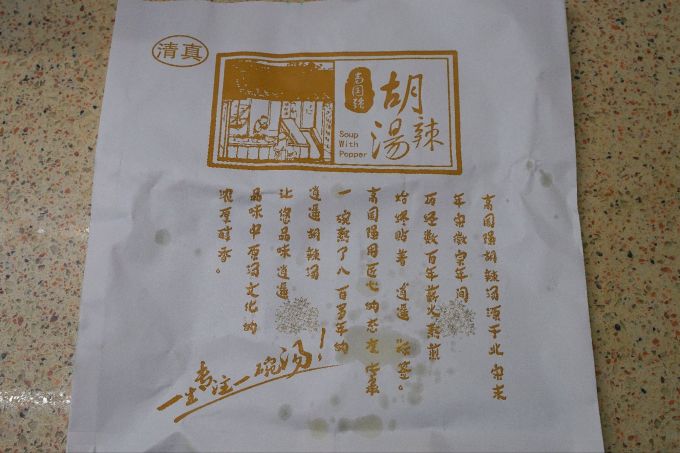 清真
高国强
胡辣湯
Soup
With
Pepper
高国强胡辣汤源于北宋末
年宋徽宗年间
历经数百年薪火熬煎
贴着 逍遥 标签。
高国强用匠心的态度传承
一碗熬了八百多年的
逍遥胡辣汤
让您品味逍遥
品味中原汤文化的
浓厚醇香。
一生专注一碗汤!